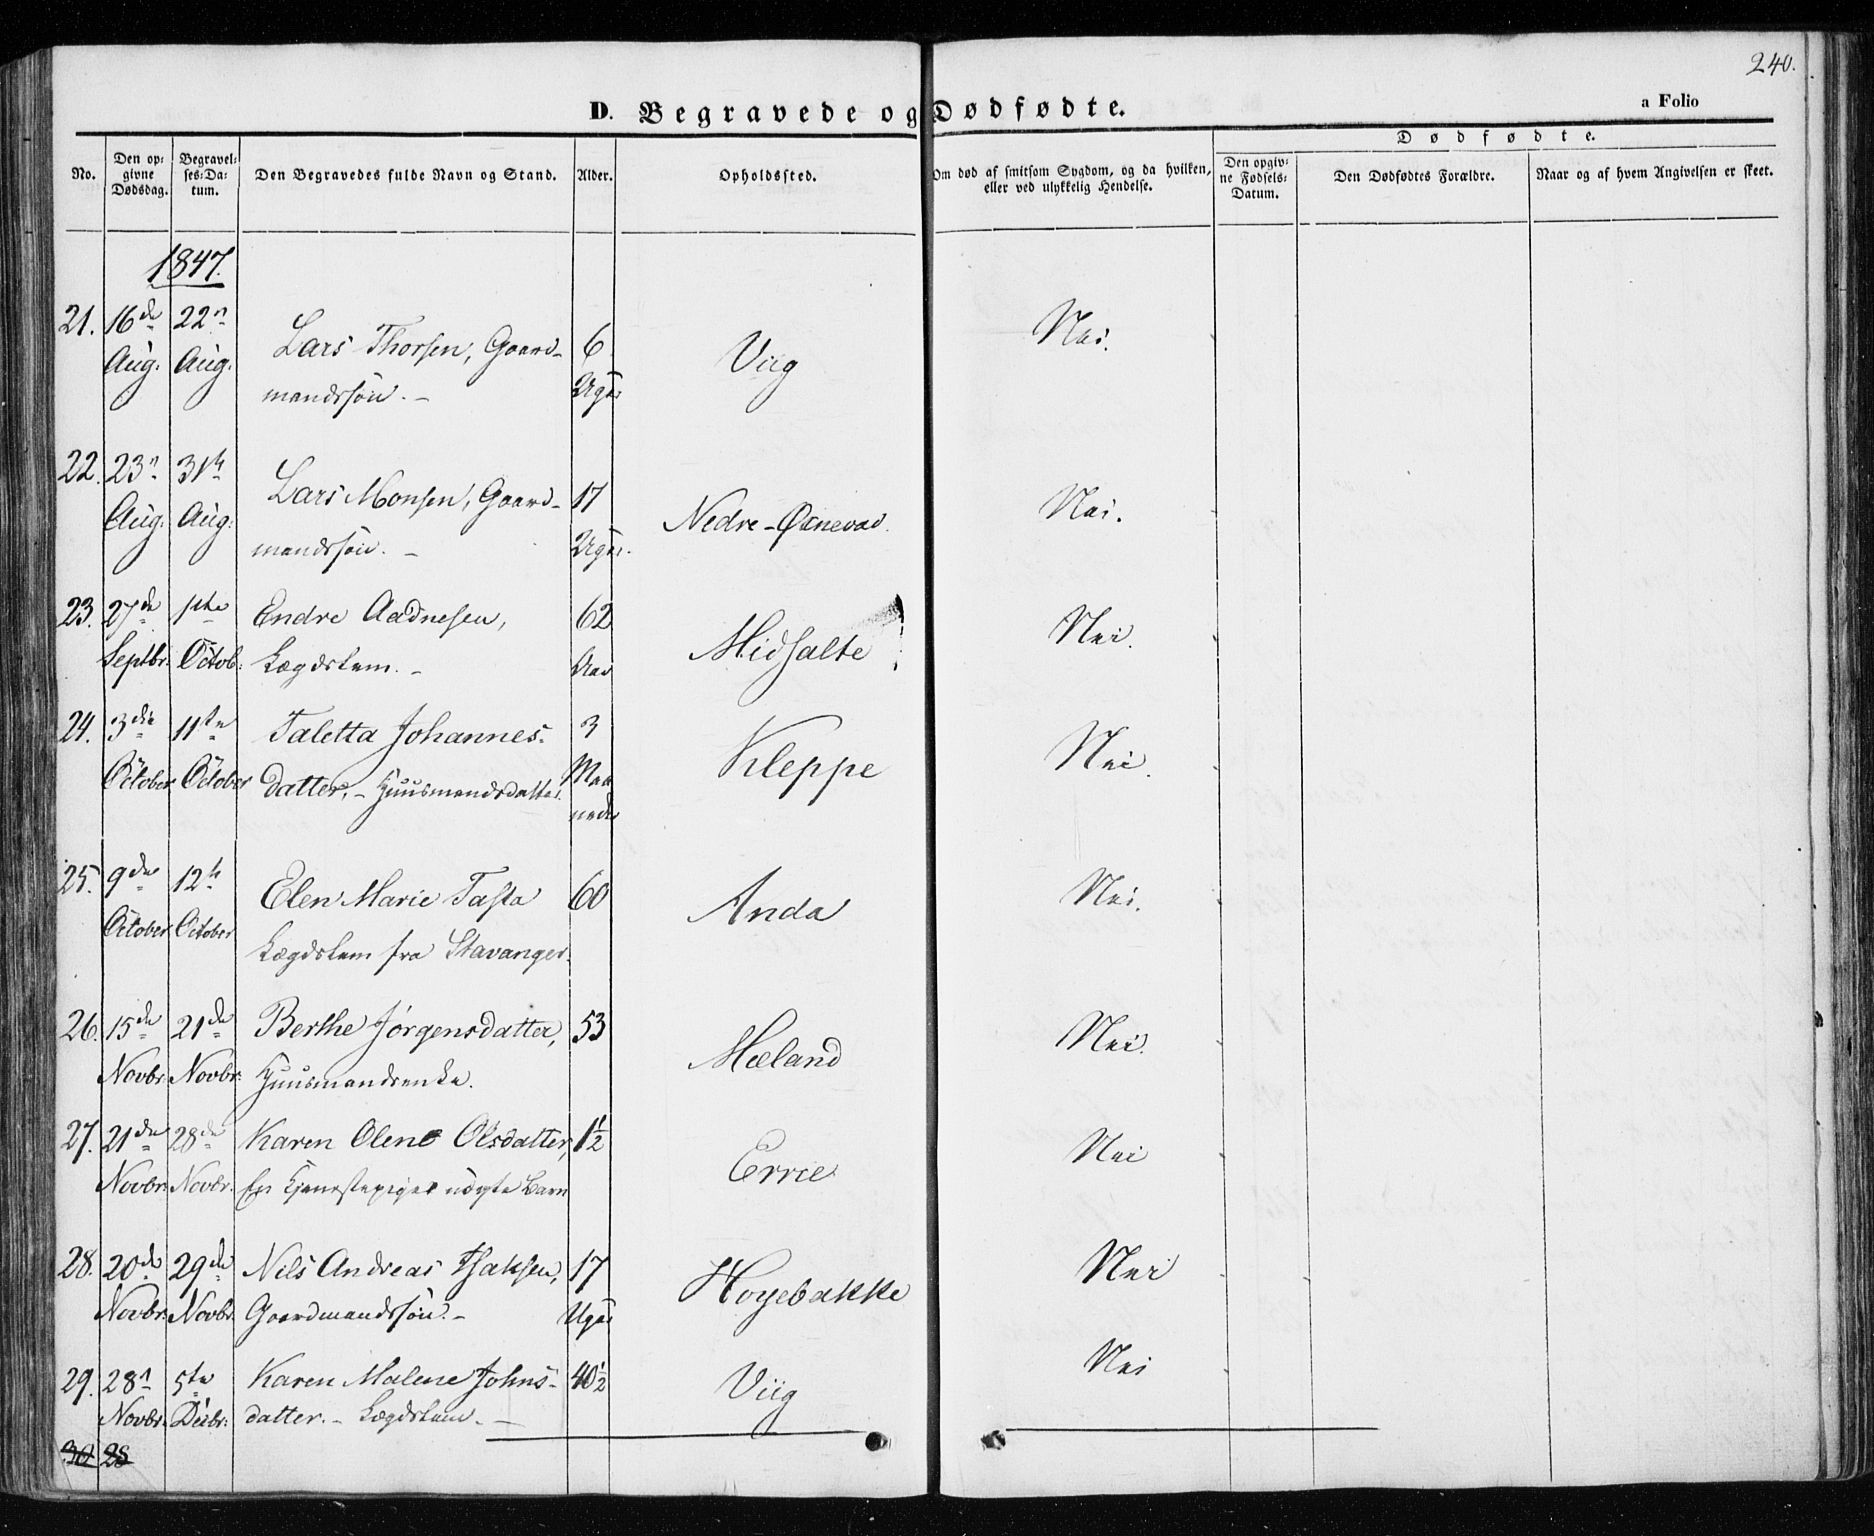 240.
D. Begravede og Dødfødte.
a Folio
No.
Den opgivne Dødsdag.
Begravelses-Datum.
Den Begravedes fulde Navn og Stand.
Alder.
Opholdssted.
Om død af smitsom Sygdom, og da hvilken, eller ved ulykkelig Hendelse.
Dødfødte.
Den opgivne Fødsels-Datum.
Den Dødfødtes Forældre.
Naar og af hvem Angivelsen er skeet.
1847.
21. 16de 22n Lars Thorsen, Gaard- 6 Viig Nei.
Aug. Aug. mandssøn. - Uger
22. 23n 31te Lars Monsen, Gaard- 17 Nedre-Øxnevad. Nei.
Aug. Aug. mandssøn. - Uger.
23. 27de 1ste Endre Aadnesen, 62 Midsalte Nei.
Septbr. Octob: Lægdslem. - Aar
24. 3die 11te Taletta Johannes- 3 Kleppe Nei.
October October datter. - Huusmandsdatter. Maa-
neder
25. 9de 12te Elen Marie Tasta 60 Anda Nei.
October October Lægdslem fra Stavanger.
26. 15de 21de Berthe Jørgensdatter, 53 Mæland Nei.
Novbr. Novbr: Huusmandsenke.
27. 21de 28de Karen Olene Olsdatter, 1½ Errie Nei
Novbr: Novbr. En Tjenestepiges uægte Barn
28. 20de 29de Nils Andreas Isaksen, 17 Høyebakke Nei
Novbr: Novbr. Gaardmandssøn. - Uger
29. 28n 5te Karen Malene Johns- 40½ Viig Nei
Novbr. Decbr: datter. - Lægdslem. -
30 28